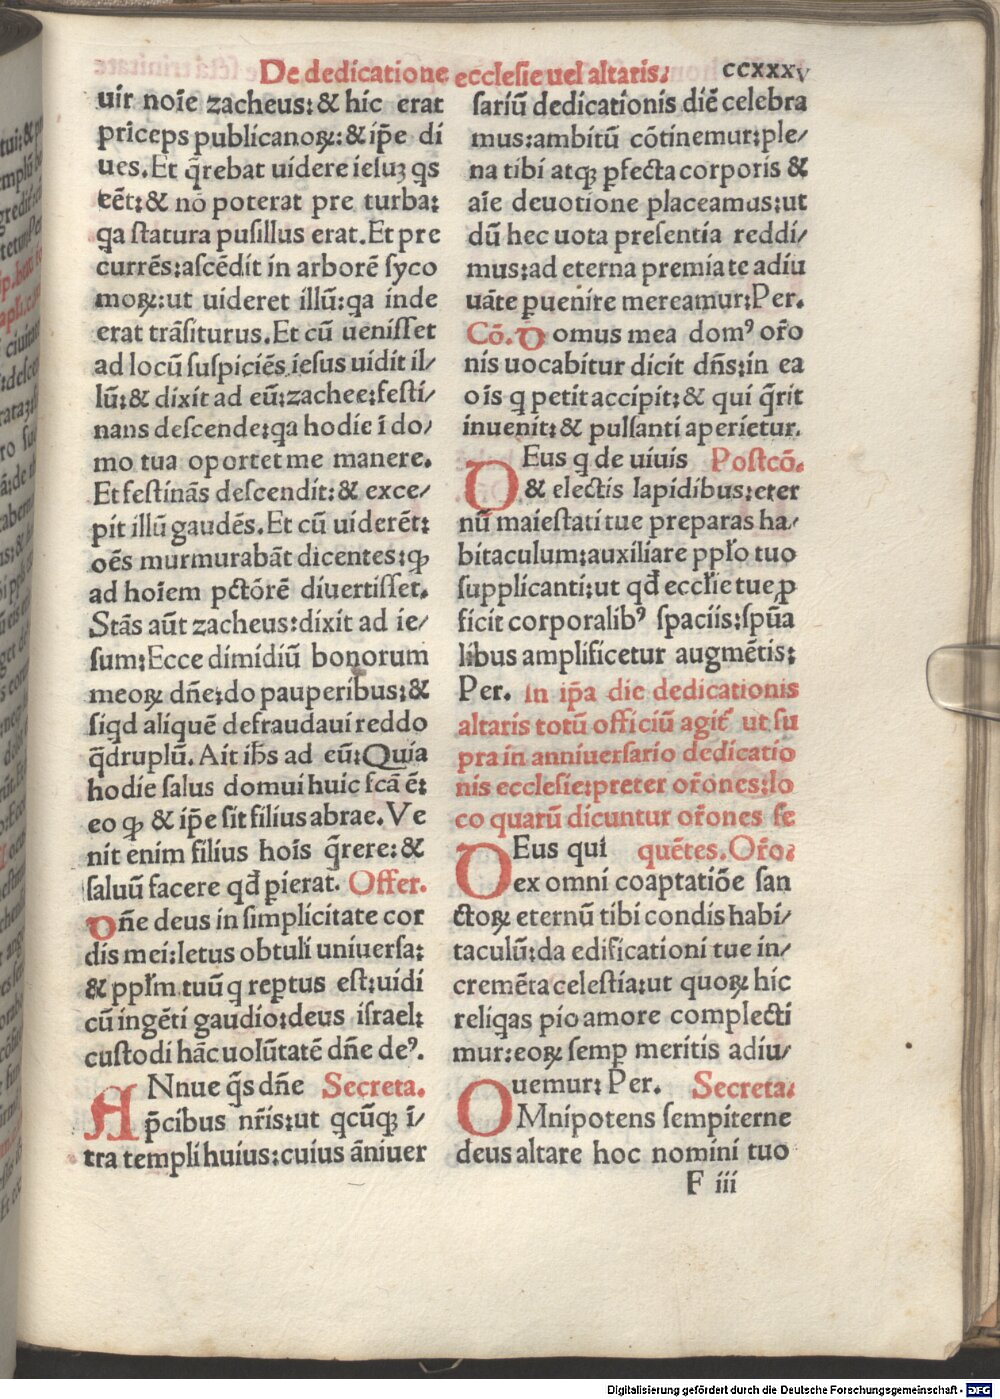 De dedicatione ecclesie uel altaris: ccxxxv
uir noīe zacheus:& hic erat
prīceps publicanoꝝ:& ip̄e di
ues.Et q̄rebat uidere iesuꝫ qs
eēt:& nō poterat pre turba:
qa statura pusillus erat.Et pre
currēs:ascēdit in arborē syco
moꝝ:ut uideret illū:qa inde
erat trāsiturus.Et cū uenisset
ad locū suspiciēs iesus uidit il⸗
lū:& dixit ad eū:zachee:festi⸗
nans descende:qa hodie ī do⸗
mo tua oportet me manere.
Et festinās descendit:& exce⸗
pit illū gaudēs.Et cū uiderēt:
oēs murmurabāt dicentes:ꝙ
ad hoīem pctōrē diuertisset.
Stās aūt zacheus:dixit ad ie⸗
sum:Ecce dimidiū bonorum
meoꝝ dn̄e:do pauperibus:&
siqd aliquē defraudaui reddo
q̄druplū.Ait ih̄s ad eū:Quia
hodie salus domui huic fcā ē:
eo ꝙ & ip̄e sit filius abrae.Ve
nit enim filius hoīs q̄rere:&
saluū facere qđ pierat. Offer.
Dn̄e deus in simplicitate cor
dis mei:letus obtuli uniuersa:
& ppl̄m tuū q reptus est:uidi
cū ingēti gaudio:deus israel:
custodi hāc uolūtatē dn̄e deꝰ.
ANnue q̄s dn̄e Secreta.
p̄cibus nr̄is:ut qcūqꝫ ī⸗
tra templi huius:cuius āniuer
sariū dedicationis diē celebra
mus:ambitū cōtinemur:ple⸗
na tibi atqꝫ ꝑfecta corporis &
aīe deuotione placeamus:ut
dū hec uota presentia reddi⸗
mus:ad eterna premia te adiu
uāte ꝑuenire mereamur:Per.
Cō. Domus mea domꝰ or̄o
nis uocabitur dicit dn̄s:in ea
oīs q petit accipit:& qui q̄rit
inuenit:& pulsanti aperietur.
DEus q de uiuis Postcō.
& electis lapidibus:eter
nū maiestati tue preparas ha⸗
bitaculum:auxiliare ppl̄o tuo
supplicanti:ut qđ eccl̄ie tue ꝓ
ficit corporalibꝰ spaciis:spūa
libus amplificetur augmētis:
Per. In ip̄a die dedicationis
altaris totū officiū agit̄ ut su
pra in anniuersario dedicatio
nis ecclesie:preter or̄ones:lo
co quarū dicuntur or̄ones se
DEus qui quētes.Or̄o:
ex omni coaptatiōe san
ctoꝝ eternū tibi condis habi⸗
taculū:da edificationi tue in⸗
cremēta celestia:ut quoꝝ hic
reliqas pio amore complecti
mur:eoꝝ semꝑ meritis adiu⸗
uemur: Per. Secreta:
OMnipotens sempiterne
deus altare hoc nomini tuo
F iii
Digitalisierung gefördert durch die Deutsche Forschungsgemeinschaft - DFG